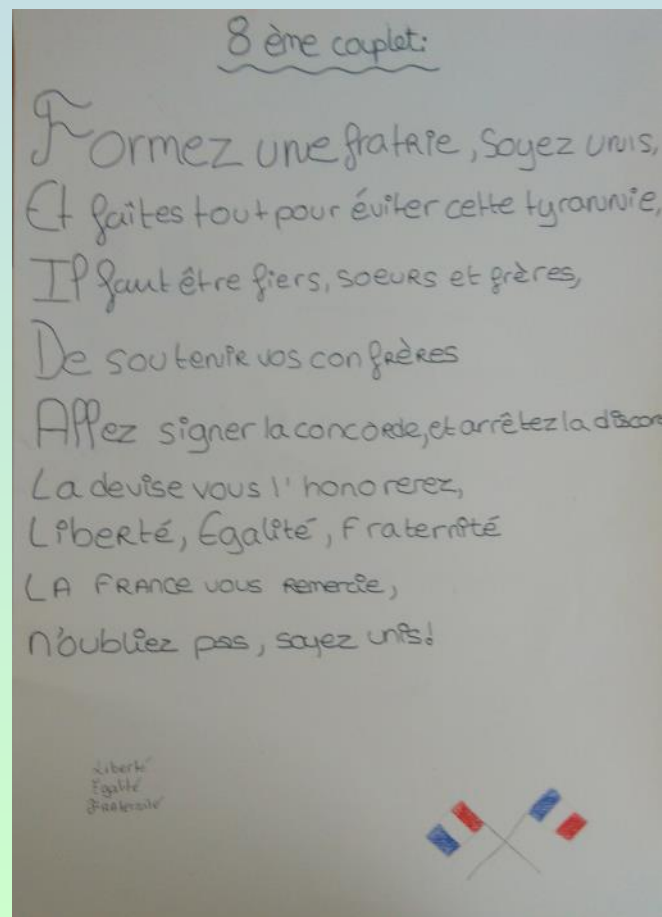 8 ème couplet:
Formez une fratrie, soyez unis,
Et faites tout pour éviter cette tyrannie,
Il faut être fiers, soeurs et frères,
De soutenir vos confrères
Allez signer la concorde, et arrêtez la discor
La devise vous l'honorerez,
Liberté, Egalité, Fraternité
LA FRANCE vous remercie,
n'oubliez pas, soyez unis!
Liberté
Egalité
Fraternité